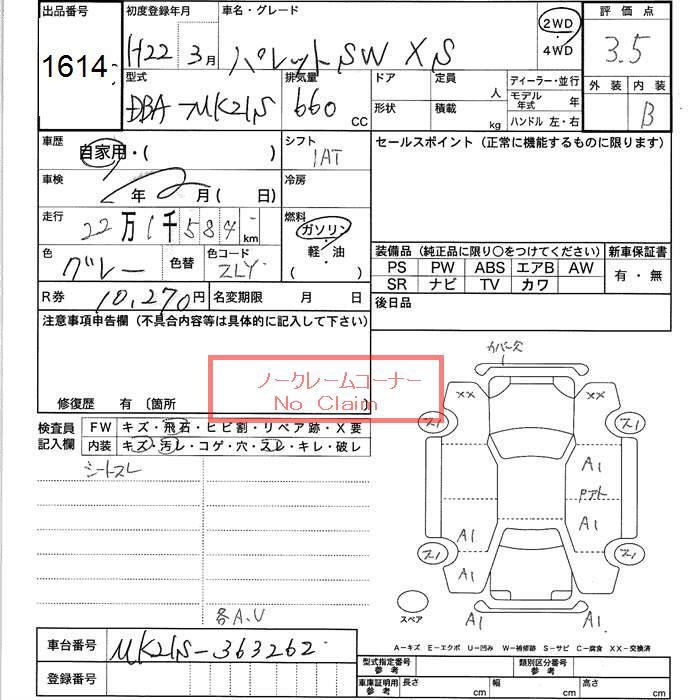 出品番号 初度登録年月 車名・グレード 評価点
1614 H22 3月 パレットSW XS 2WD・4WD 3.5
型式 排気量 ドア 定員 人 ディーラー・並行 外装 内装
DBA-MK21S 660 CC 形状 積載 kg モデル年式 年 B
ハンドル 左・右
車歴 自家用・( ) シフト 1AT セールスポイント(正常に機能するものに限ります)
車検 年 月(日) 冷房
走行 22万1千584km 燃料 ガソリン
軽・油
( )
色 グレー 色替 色コード ZLY 装備品(純正品に限り〇をつけてください) 新車保証書
PS PW ABS エアB AW 有・無
SR ナビ TV カワ
R券 10,270円 名変期限 月 日 後日品
注意事項申告欄(不具合内容等は具体的に記入して下さい)
カバー欠
ノークレームコーナー
No Claim
修復歴 有〔箇所 〕
検査員記入欄 FW キズ・飛石・ヒビ割・リペア跡・X要
内装 キズ・汚レ・コゲ・穴・スレ・キレ・破レ
シートスレ
XX XX
ス1 ス1
A1
Pアト
A1 A1
ス1 ス1
A1
A1 A1
スペア
各A.U
A-キズ E-エクボ U-凹み W-補修跡 S-サビ C-腐食 XX-交換済
車台番号 MK21S-363262
登録番号
型式指定番号 参考 類別区分番号 参考
車庫証明用 参考 長さ cm 幅 cm 高さ cm